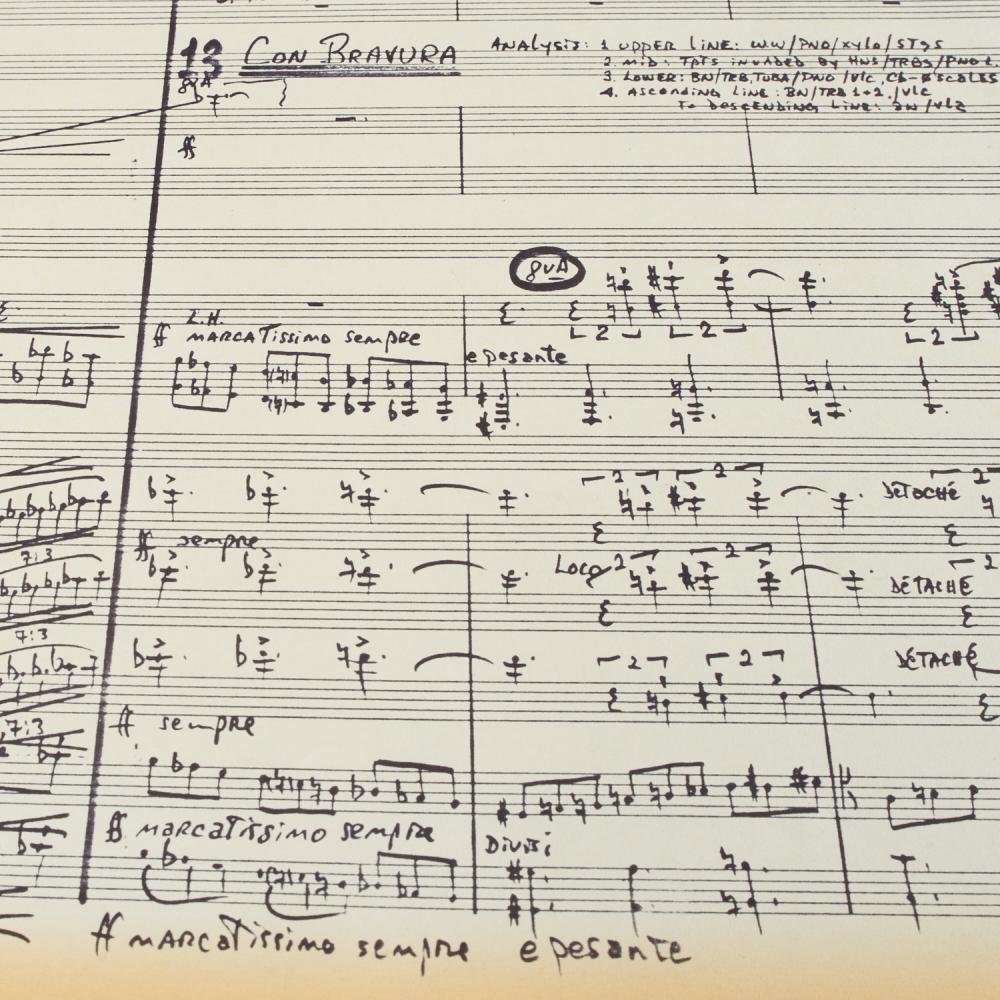 13 CON BRAVURA
ANALYSIS: 1 UPPER LINE: WW/PNO/XYLO/STGS
2. MID: TPTS INVADED BY HNS/TRBS/PNO L.
3. LOWER: BN/TRB, TUBA/PNO/VLC, CB-8 SCALES
4. ASCENDING LINE: BN/TRB 1+2./VLC
TO DESCENDING LINE: BN/VLC
8VA
ff
8VA
L.H.
ff MARCATISSIMO sempre
2 2 2
e pesante
2 2 2
DETACHÉ
ff sempre
7:3
LOCO 2 2 2
DÉTACHÉ
7:3
2 2
DÉTACHÉ
ff sempre
7:3
ff MARCATISSIMO SEMPRE
DIVISI
ff MARCATISSIMO sempre e pesante